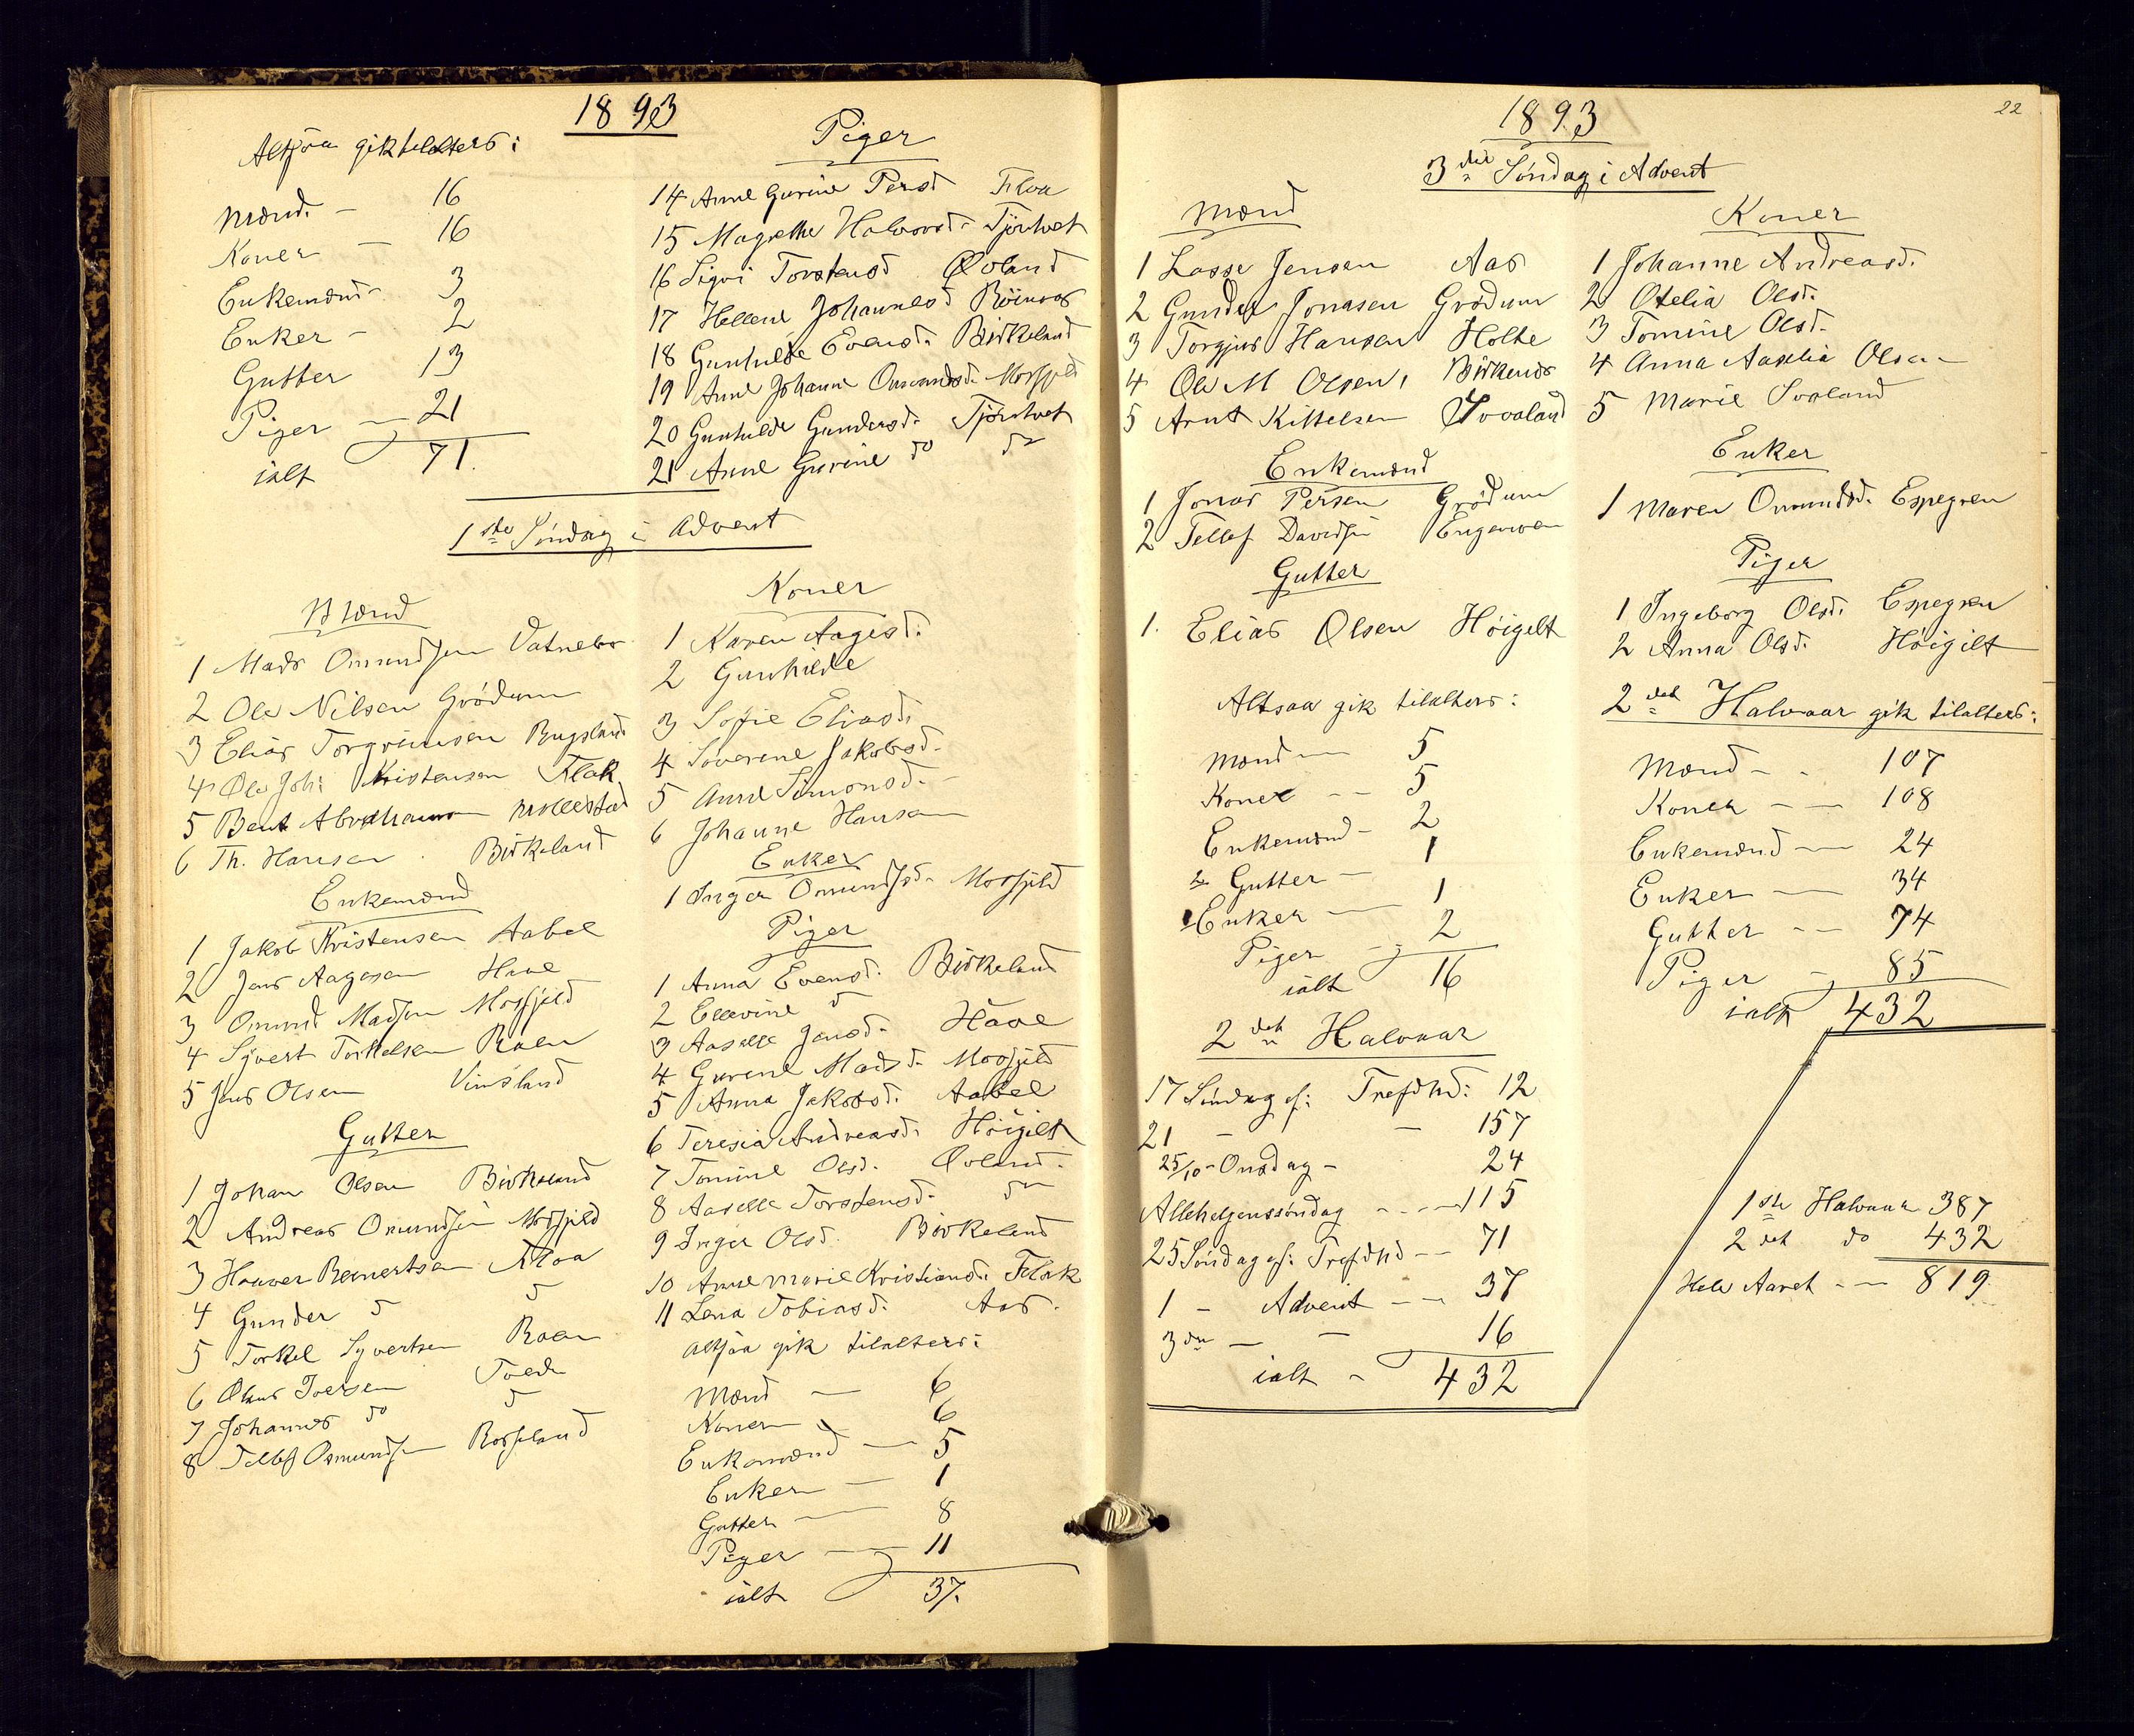 1893
Altsaa gik tilalters:
Mænd. - 16
Koner - 16
Enkemænd - 3
Enker - 2
Gutter 13
Piger - 21
ialt 71.
Piger
14 Anne Gurine Persd Floa
15 Magrethe Halvorsd. Tjörhvet
16 Sigvi Torstensd Qvland
17 Hellene Johannesd
18 Gunhilde Evensd. Birkeland
19 Anne Johanne Omundsd. Mosfjeld
20 Gunhilde Gundersd. Tjörhvet
21 Anne Gurine do do
1ste Söndag i Advent
Mænd
1 Mads Omundsen Vatnebo
2 Ole Nilsen Grödum
3 Elias Torgrimsen Bugsland
4 Ole Joh: Kristensen Flak
5 Bent Abrahamsen Mollestad
6 Th. Hansen. Birkeland
Enkemænd
1 Jakob Kristensen Aabel
2 Jens Aagesen Haae
3 Omund Madsen Mosfjeld
4 Syvert Torkelsen Roen
5 Jens Olsen Vimsland
Gutter
1 Johan Olsen Birkeland
2 Andreas Omundsen Mosfjeld
3 Haaver Reinertsen Floa
4 Gunder d d
5 Torkel Syvertsen Roen
6 Olaus Iversen Tvede
7 Johannes do d
8 Tellef Osmundsen Rosseland
Koner
1 Karen Aagesd.
2 Gunhilde
3 Sofie Eliasd.
4 Severene Jakobsd.
5 Anne Simonsd. -
6 Johanne Hansen
Enker
1 Inger Omundsd. Mosfjeld
Piger
1 Anna Evensd. Birkeland
2 Ellevine d
3 Aaselle Jensd. Haae
4 Gurine Madsd. Mosfjeld
5 Anna Jakobsd. Aabel
6 Teresia Andreasd. Höigilt
7 Tomine Olsd. Qvland.
8 Aaselle Torstensd. do
9 Inger Olsd. Birkeland
10 Anne Marie Kristiansd. Flak
11 Lena Tobiasd. Aas.
Altsaa gik tilalters:
Mænd - 6
Koner - 6
Enkemænd - 5
Enker - 1
Gutter - 8
Piger - 11
ialt 37.
22
1893
3die Söndag i Advent
Mænd
1 Lasse Jensen Aas
2 Gunder Jonasen Grødum
3 Torgjus Hansen Holte
4 Ole M Olsen, Birkenes
5 Arnt Kittelsen
Enkemænd
1 Jonas Persen Grødum
2 Tellef Davidsen
Gutter
1. Elias Olsen Höigelt
Koner
1 Johanne Andreasd.
2 Otelia Olsd.
3 Tomine Olsd.
4 Anna Aaselie Olsen
5 Marie
Enker
1 Maren Omundsd. Espegren
Piger
1 Ingeborg Olsd. Espegren
2 Anna Olsd. Höigilt
Altsaa gik tilalters:
Mænd - 5
Koner - - 5
Enkemænd - 2
Gutter - 1
Enker - 1
Piger - 2
ialt 16
2det Halvaar
17 Söndag ef: Trefdhd: 12
21 - - 157
25/10 - Onsdag - 24
Allehelgenssöndag - - - 115
25 Söndag ef: Trefdhd - - 71
1 - Advent - - 37
3die - - 16
ialt - 432
2det Halvaar gik tilalters:
Mænd - - 107
Koner - - 108
Enkemænd - 24
Enker - 34
Gutter - - 74
Piger - 85
ialt 432
1ste Halvaar 387
2det do 432
Hele Aaret - - 819.